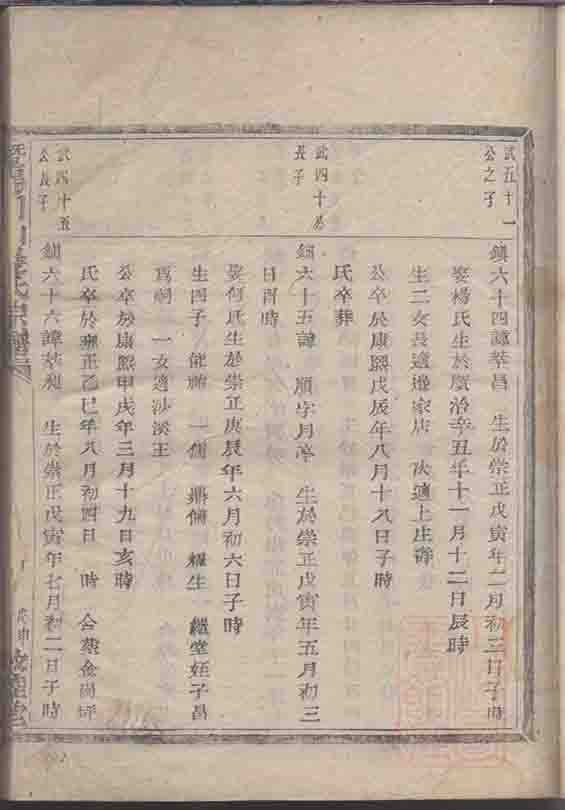 武五十一
公之子
鎮六十四諱萃昌 生於崇正戊寅年二月初三日子時
娶楊氏生於順治辛丑年十一月十二日辰時
生二女長適邊家店 次適上庄蔣
公卒於康熙戊辰年八月十八日子時
氏卒葬
武四十
長子
鎮六十五諱 順字月亭 生於崇正戊寅年五月初三
日酉時
娶何氏生於崇正庚辰年六月初六日子時
生四子 能 一 鼎 繼生 繼堂姪子昌
爲嗣 一女適沙溪王
公卒於康熙甲戌年三月十九日亥時
氏卒於雍正乙巳年八月初四日 時 合葬金崗坪
武四十五
公長子
鎮六十六諱萃 生於崇正戊寅年七月初二日子時
氏宗譜